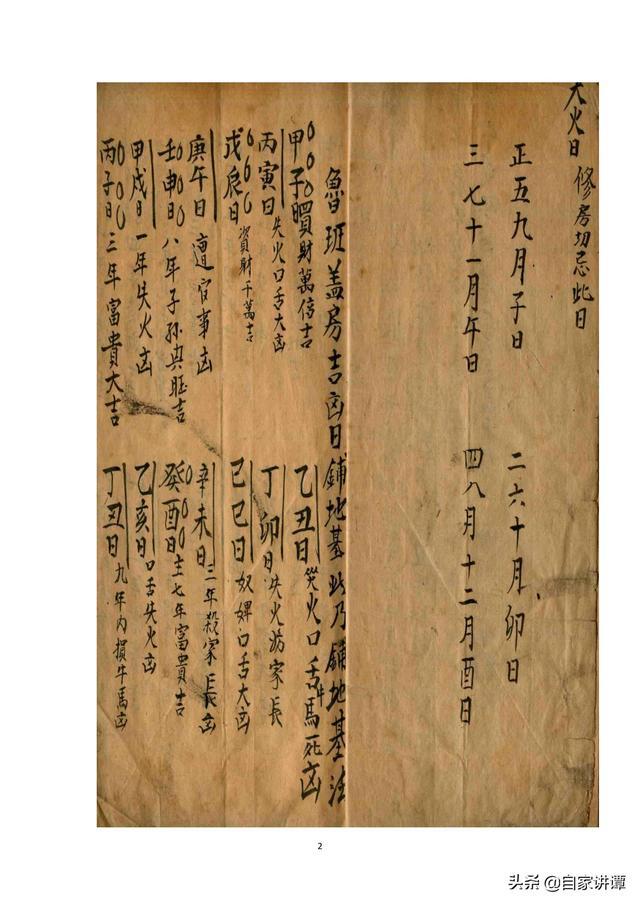 大火日 修房切忌此日
正五九月子日 二六十月卯日
三七十一月午日 四八月十二月酉日
魯班盖房吉凶日鋪地基此乃鋪地基法
甲子日 置財萬倍吉
乙丑日 災火口舌牛馬死凶
丙寅日 失火口舌大凶
丁卯日 失火妨家長
戊辰日 資財千萬吉
己巳日 奴婢口舌大凶
庚午日 遭官事凶
辛未日 三年殺家長凶
壬申日 八年子孫興旺吉
癸酉日 主七年富貴吉
甲戌日 一年失火凶
乙亥日 口舌失火凶
丙子日 三年富貴大吉
丁丑日 九年內損牛馬凶
2
头条 @自家讲谭